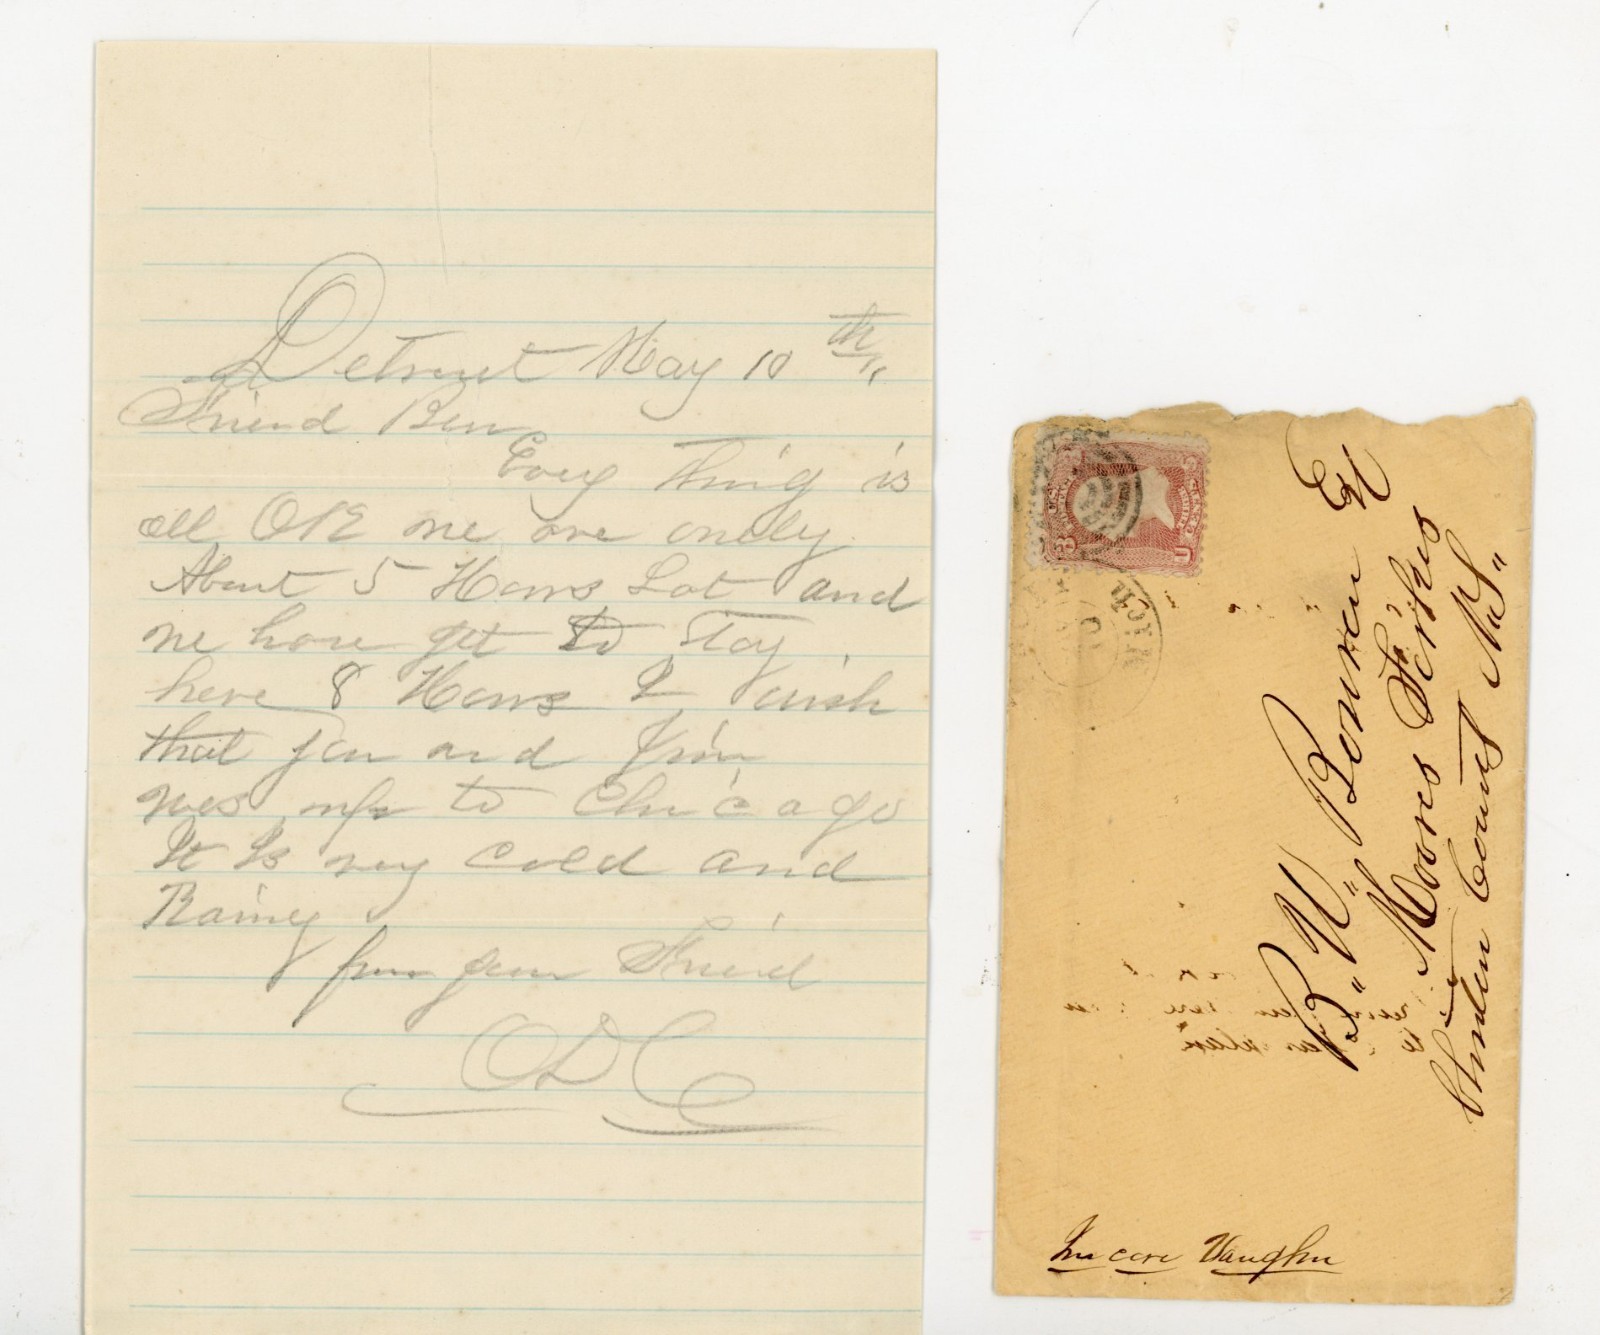 Detroit May 10th
Friend Ben
Every thing is
all OK we are only
About 5 Hours Lat and
we have got to Stay
here 8 Hours I wish
that you and
was up to Chicago
It Is very cold and
Rainey
from your Friend
ODC
B. W. Esq
Moores Forkes
Clinton County N.Y.
In care Vaughn
3
U
MICH.
10